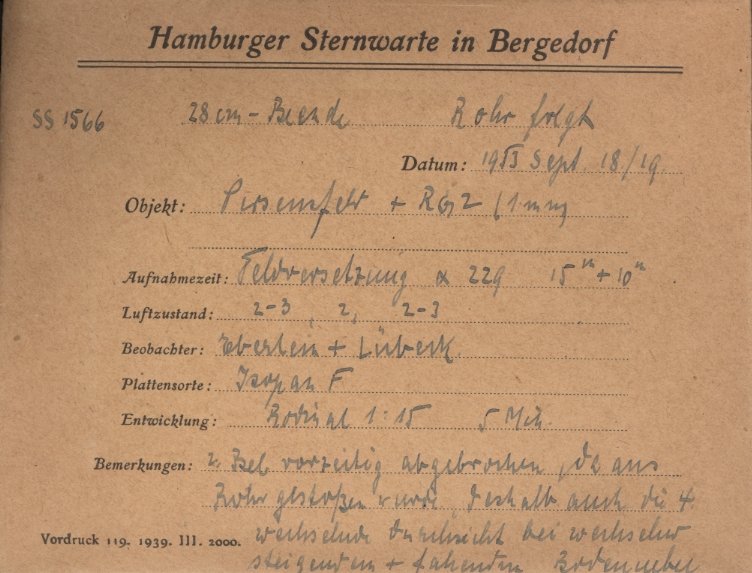 Hamburger Sternwarte in Bergedorf
SS 1566 28 cm - Blende Rohr folgt
Datum: 1953 Sept. 18/19
Objekt: + RG 2 (1mm)
Aufnahmezeit: Feldversetzung α 229 15ᵐ + 10ᵐ
Luftzustand: 2-3, 2, 2-3
Beobachter: Eberlein + Lübeck
Plattensorte: Isopan F
Entwicklung: Rodinal 1:15 5 Min.
Bemerkungen: 2. Bel vorzeitig abgebrochen, da ans
Rohr gestoßen wurde, deshalb auch die 4.
Vordruck 119. 1939. III. 2000. wechselnde Durchsicht bei wechselnd
steigendem + fallendem Bodennebel